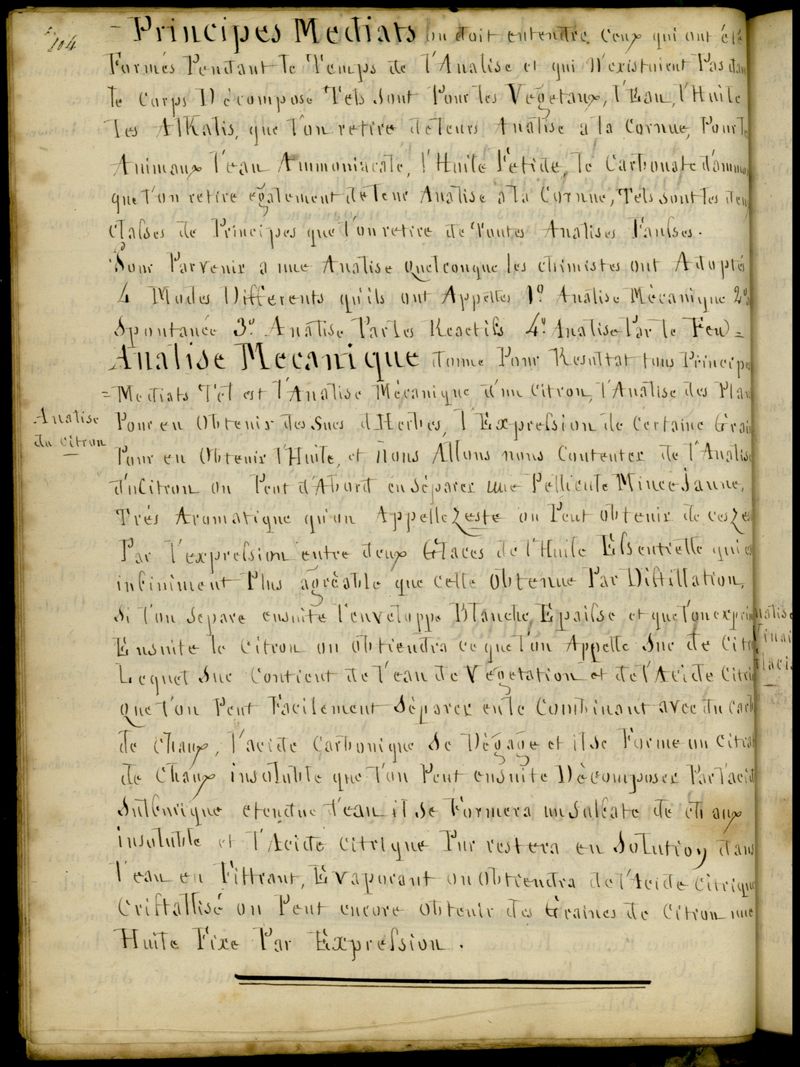 104
= Principes Mediats on doit entendre Ceux qui ont été
Formés Pendant le Temps de l'Analise et qui N'existoient Pas dans
le Corps Décomposé Tels sont Pour les Vegetaux, l'Eau, l'Huile
les Alkalis, que l'on retire de leurs Analise a la Cornue, Pour l
Animaux l'eau Ammoniacale, l'Huile Fetide, le Carbonate d'ammo
que l'on retire également de leur Analise a la Cornue, Tels sont les deux
Classes de Principes que l'on retire de Toutes Analises Fausses.
Pour Parvenir a une Analise Quelconque les chimistes ont Adoptés
4 Modes Differents qu'ils ont Appellés 1º Analise Mécanique 2º
Spontanée 3º Analise Par les Reactifs 4º Analise Par le Feu =
Analise Mecanique donne Pour Resultat tous Principe
= Mediats Tel est l'Analise Mécanique d'un Citron, l'Analise des Plan
Analise
du citron
Pour en Obtenir des Sucs d'Herbes, l'Expression de Certaine Grain
Pour en Obtenir l'Huile, et Nous Allons nous Contenter de l'Analise
du Citron on Peut d'Abord en Séparer une Pellicule Mince Jaune,
Trés Aromatique qu'on Appelle Zeste on Peut Obtenir de ces Ze
Par l'expression entre deux Glaces de l'Huile Essentielle qui es
infiniment Plus agréable que celle Obtenue Par Distillation,
Si l'on Separe ensuite l'enveloppe Blanche, Epaisse et que l'on exprim
Ensuite le Citron on obtiendra ce que l'on Appelle Suc de Citr
Lequel Suc Contient de l'eau de Végétation et de l'Acide Citri
Que l'on Peut Facilement Séparer en le Combinant avec du Carb
de Chaux, l'acide Carbonique Se Dégage et il Se Forme un Citrat
de Chaux insoluble que l'on Peut ensuite Décomposer Par l'acid
Sulfurique etendue d'eau il Se Formera un Sulfate de chaux
insoluble et l'Acide Citrique Pur restera en Solution dans
l'eau en Filtrant, Evaporant on Obtiendra de l'Acide Citrique
Cristallisé on Peut encore Obtenir des Graines de Citron une
Huile Fixe Par Expression.